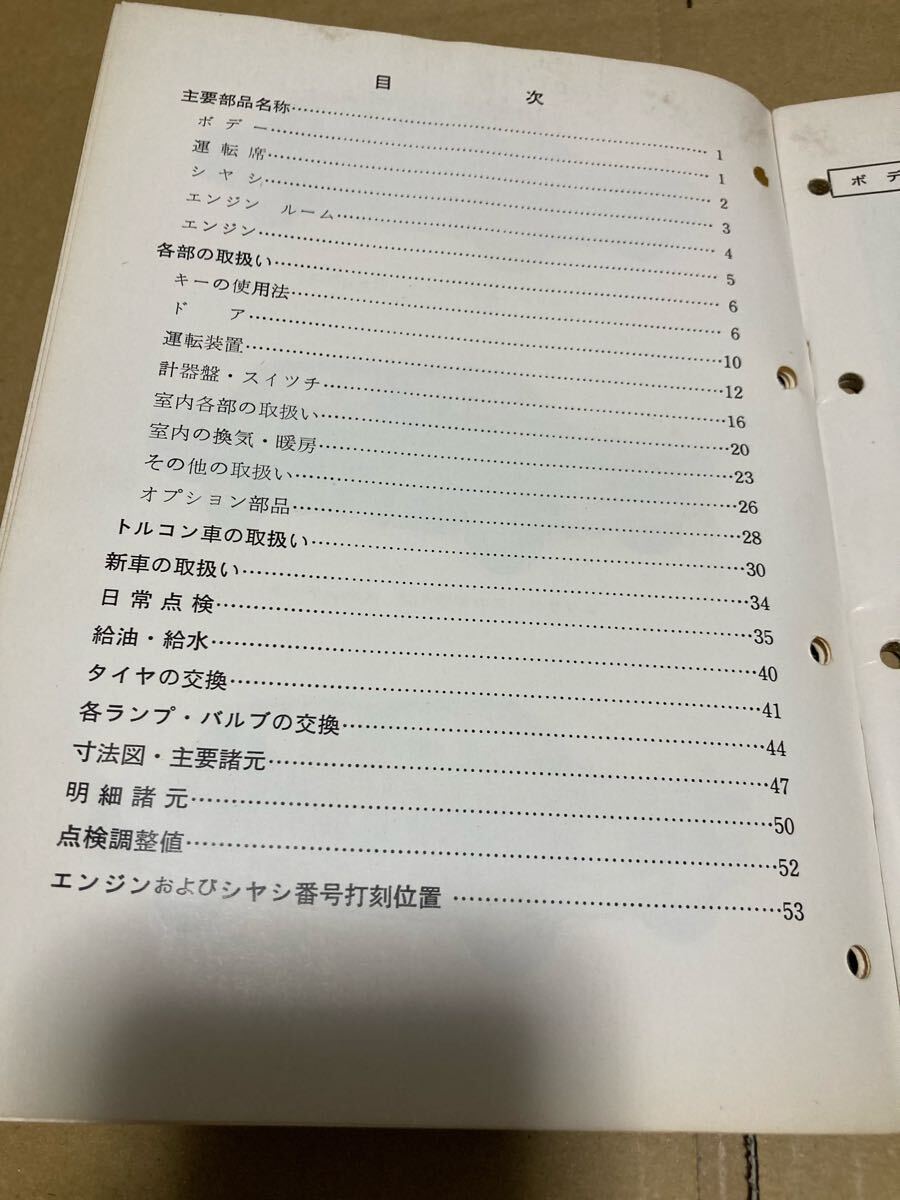 目次
主要部品名称…………1
ボデー…………1
運転席…………2
シヤシ…………3
エンジン ルーム…………4
エンジン…………5
各部の取扱い…………6
キーの使用法…………6
ドア…………10
運転装置…………12
計器盤・スイツチ…………16
室内各部の取扱い…………20
室内の換気・暖房…………23
その他の取扱い…………26
オプション部品…………28
トルコン車の取扱い…………30
新車の取扱い…………34
日常点検…………35
給油・給水…………40
タイヤの交換…………41
各ランプ・バルブの交換…………44
寸法図・主要諸元…………47
明細諸元…………50
点検調整値…………52
エンジンおよびシヤシ番号打刻位置…………53
ボデ